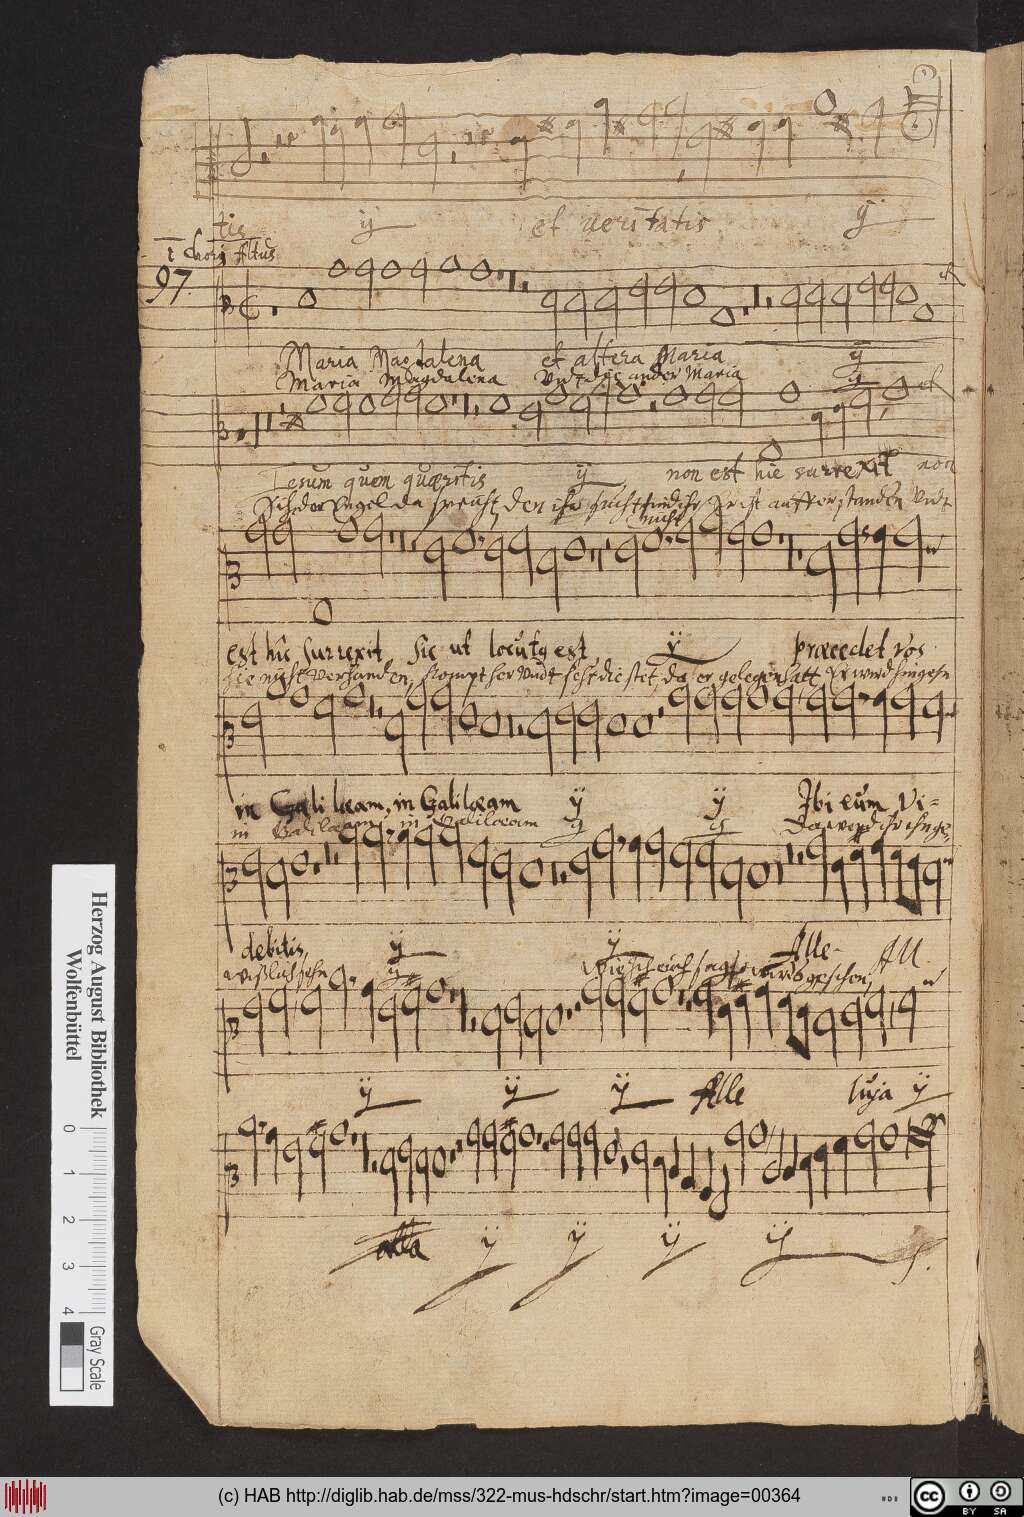 tis ÿ et veritatis ÿ
1 Chorg Altus
97
Maria Magdalena et altera Maria ÿ
Maria Magdalena Vndt die ander Maria ÿ
Iesum quem quæritis ÿ non est hie surrexit non
Sih der Engel da spracht, den ihr sucht findt ihr nicht, Er ist aufferstanden Vndt
est hic surrexit, sic ut locutg est, ÿ præcedet vos
hie nicht verhanden, Kompt her Vndt seht die stet, da er gelegen hatt Er wird hingehn
in Galilæam, in Galilæam ÿ ÿ Ibi eum Vi=
in Galilæam, in Galilæam ÿ ÿ Da werd ihr ihn ge=
debitis, ÿ ÿ Alle- All.
wißlich sehn ÿ
ÿ ÿ ÿ Alle luja ÿ
alla ÿ ÿ ÿ ÿ
Herzog August Bibliothek
Wolfenbüttel
0 1 2 3 4
Gray Scale
(c) HAB http://diglib.hab.de/mss/322-mus-hdschr/start.htm?image=00364
cc BY SA